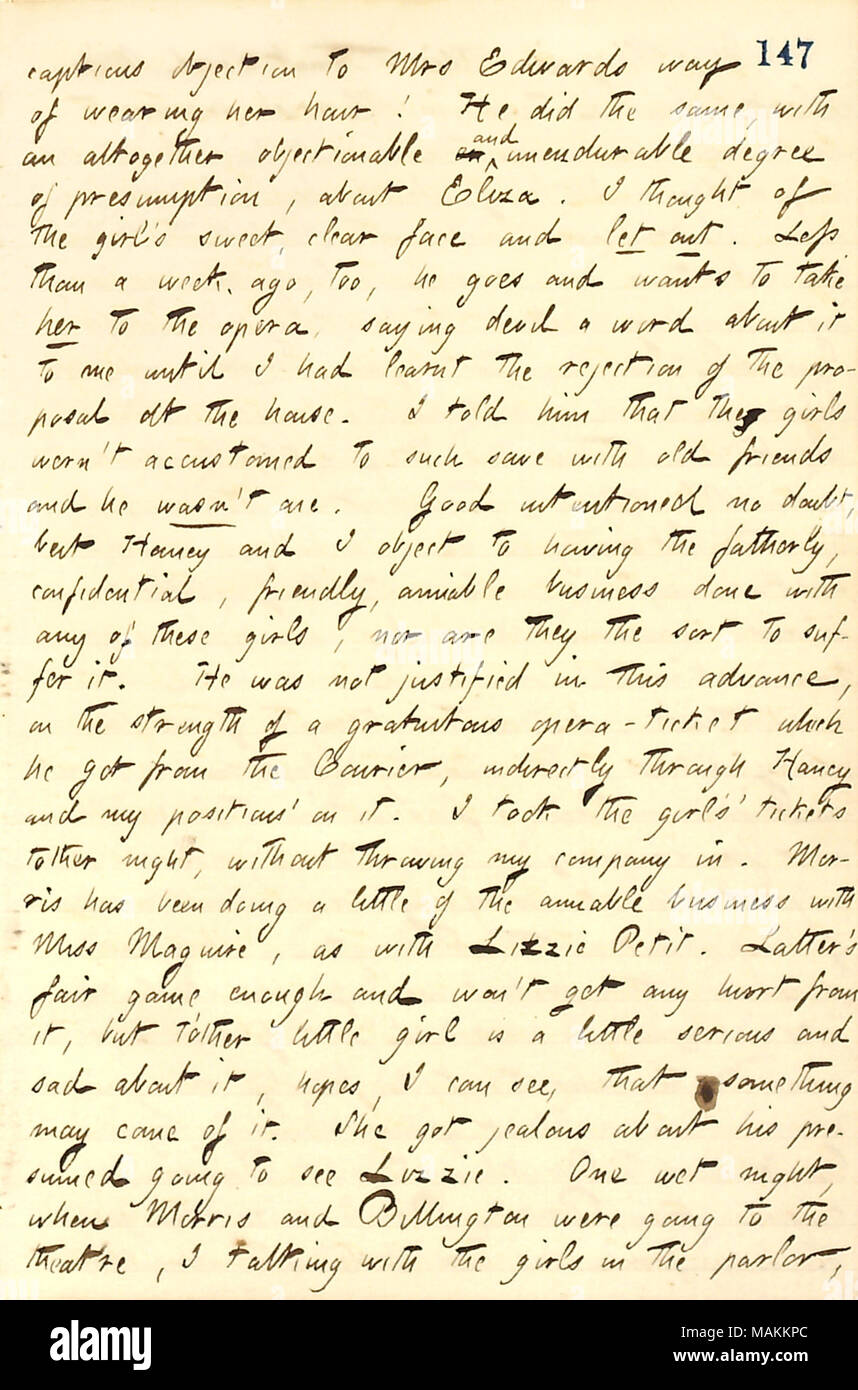 147
captious objection to Mrs Edwards way
of wearing her hair! He did the same, with
an altogether objectionable an and unendurable degree
of presumption, about Eliza. I thought of
the girl's sweet, clear face and let out. Less
than a week ago, too, he goes and wants to take
her to the opera, saying devil a word about it
to me until I had learnt the rejection of the pro-
posal at the house. I told him that the girls
wern't accustomed to such save with old friends
and he wasn't one. Good intentioned no doubt,
but Haney and I object to having the fatherly,
confidential, friendly, amiable business done with
any of these girls, nor are they the sort to suf-
fer it. He was not justified in this advance,
on the strength of a gratuitous opera-ticket which
he got from the Courier, indirectly through Haney
and my positions' on it. I took the girls' tickets
tother night, without throwing my company in. Mor-
ris has been doing a little of the amiable business with
Miss Maguire, as with Lizzie Petit. Latter's
fair game enough and won't get any hurt from
it, but t'other little girl is a little serious and
sad about it, hopes, I can see, that something
may come of it. She got jealous about his pre-
sumed going to see Lizzie. One wet night,
when Morris and Billington were going to the
theatre, I talking with the girls in the parlor,
alamy
Image ID: MAKKPC
www.alamy.com